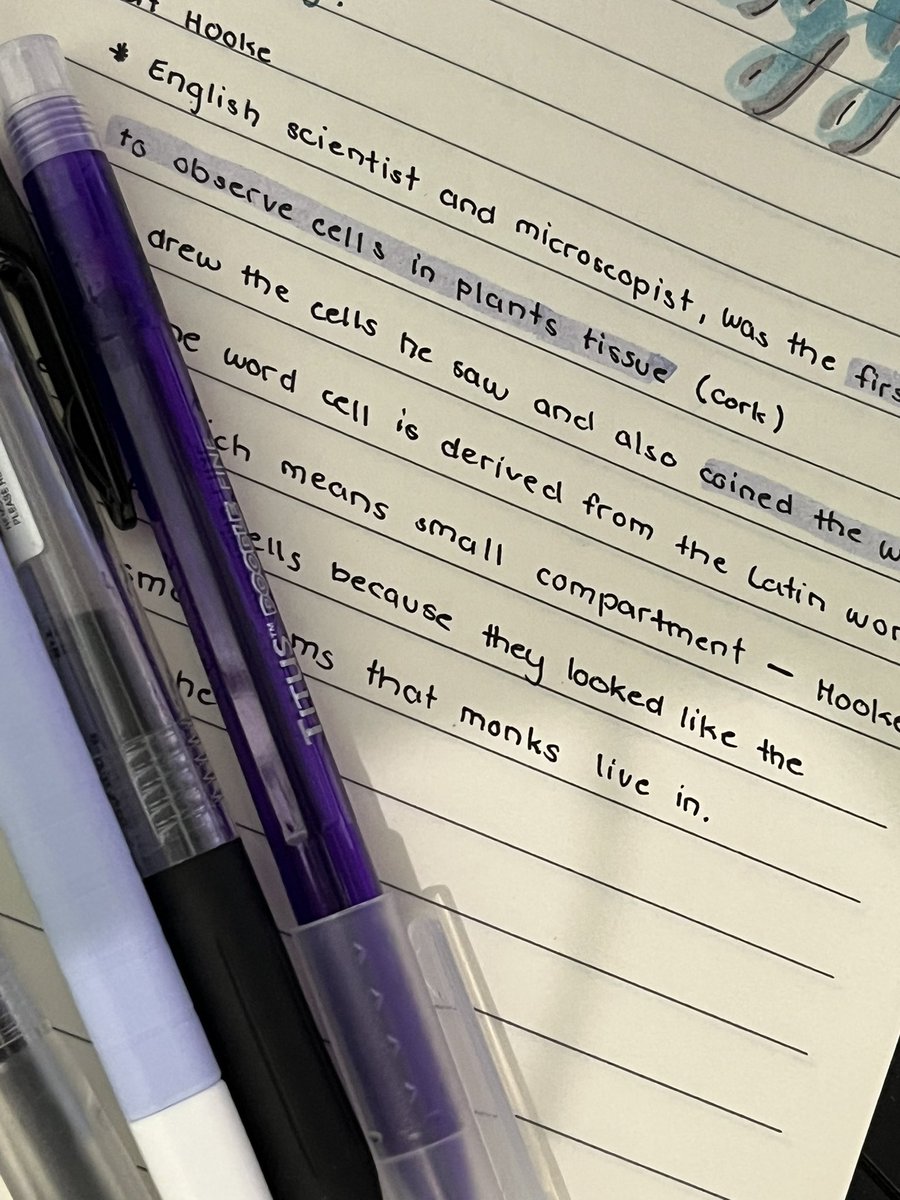 Hooke
* English scientist and microscopist, was the firs
to observe cells in plants tissue (cork)
drew the cells he saw and also coined the w
word cell is derived from the Latin wor
ich means small compartment – Hooke
ells because they looked like the
sma ms that monks live in.
he
TITUS™ DOODLE
PLEASE